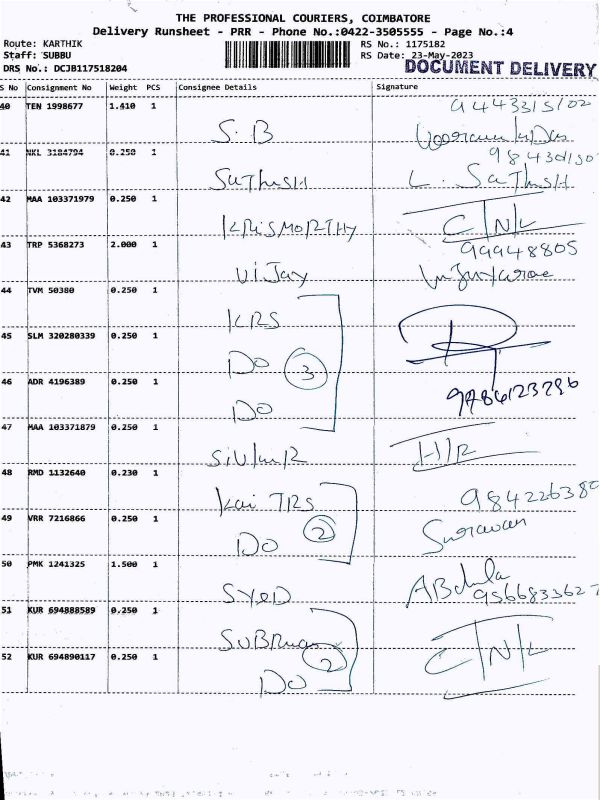 THE PROFESSIONAL COURIERS, COIMBATORE
Delivery Runsheet - PRR - Phone No.:0422-3505555 - Page No.:4
Route: KARTHIK RS No.: 1175182
Staff: SUBBU RS Date: 23-May-2023
DRS No.: DCJB117518204 DOCUMENT DELIVERY
S No Consignment No Weight PCS Consignee Details Signature
40 TEN 1998677 1.410 1 S.B
41 NKL 3184794 0.250 1 SATHISH L. SATHISH
42 MAA 103371979 0.250 1 KRISMORTHY C/N/L
43 TRP 5368273 2.000 1 VIJAY 99948805
44 TVM 50380 0.250 1 KRS
45 SLM 320280339 0.250 1 DO 3
46 ADR 4196389 0.250 1 DO 9786123296
47 MAA 103371879 0.250 1 H/R
48 RMD 1132640 0.230 1 Kai TRS 984226380
49 VRR 7216866 0.250 1 DO 2
50 PMK 1241325 1.500 1 SYED ABdula 956683362
51 KUR 694888589 0.250 1
52 KUR 694890117 0.250 1 DO 2 C/N/L